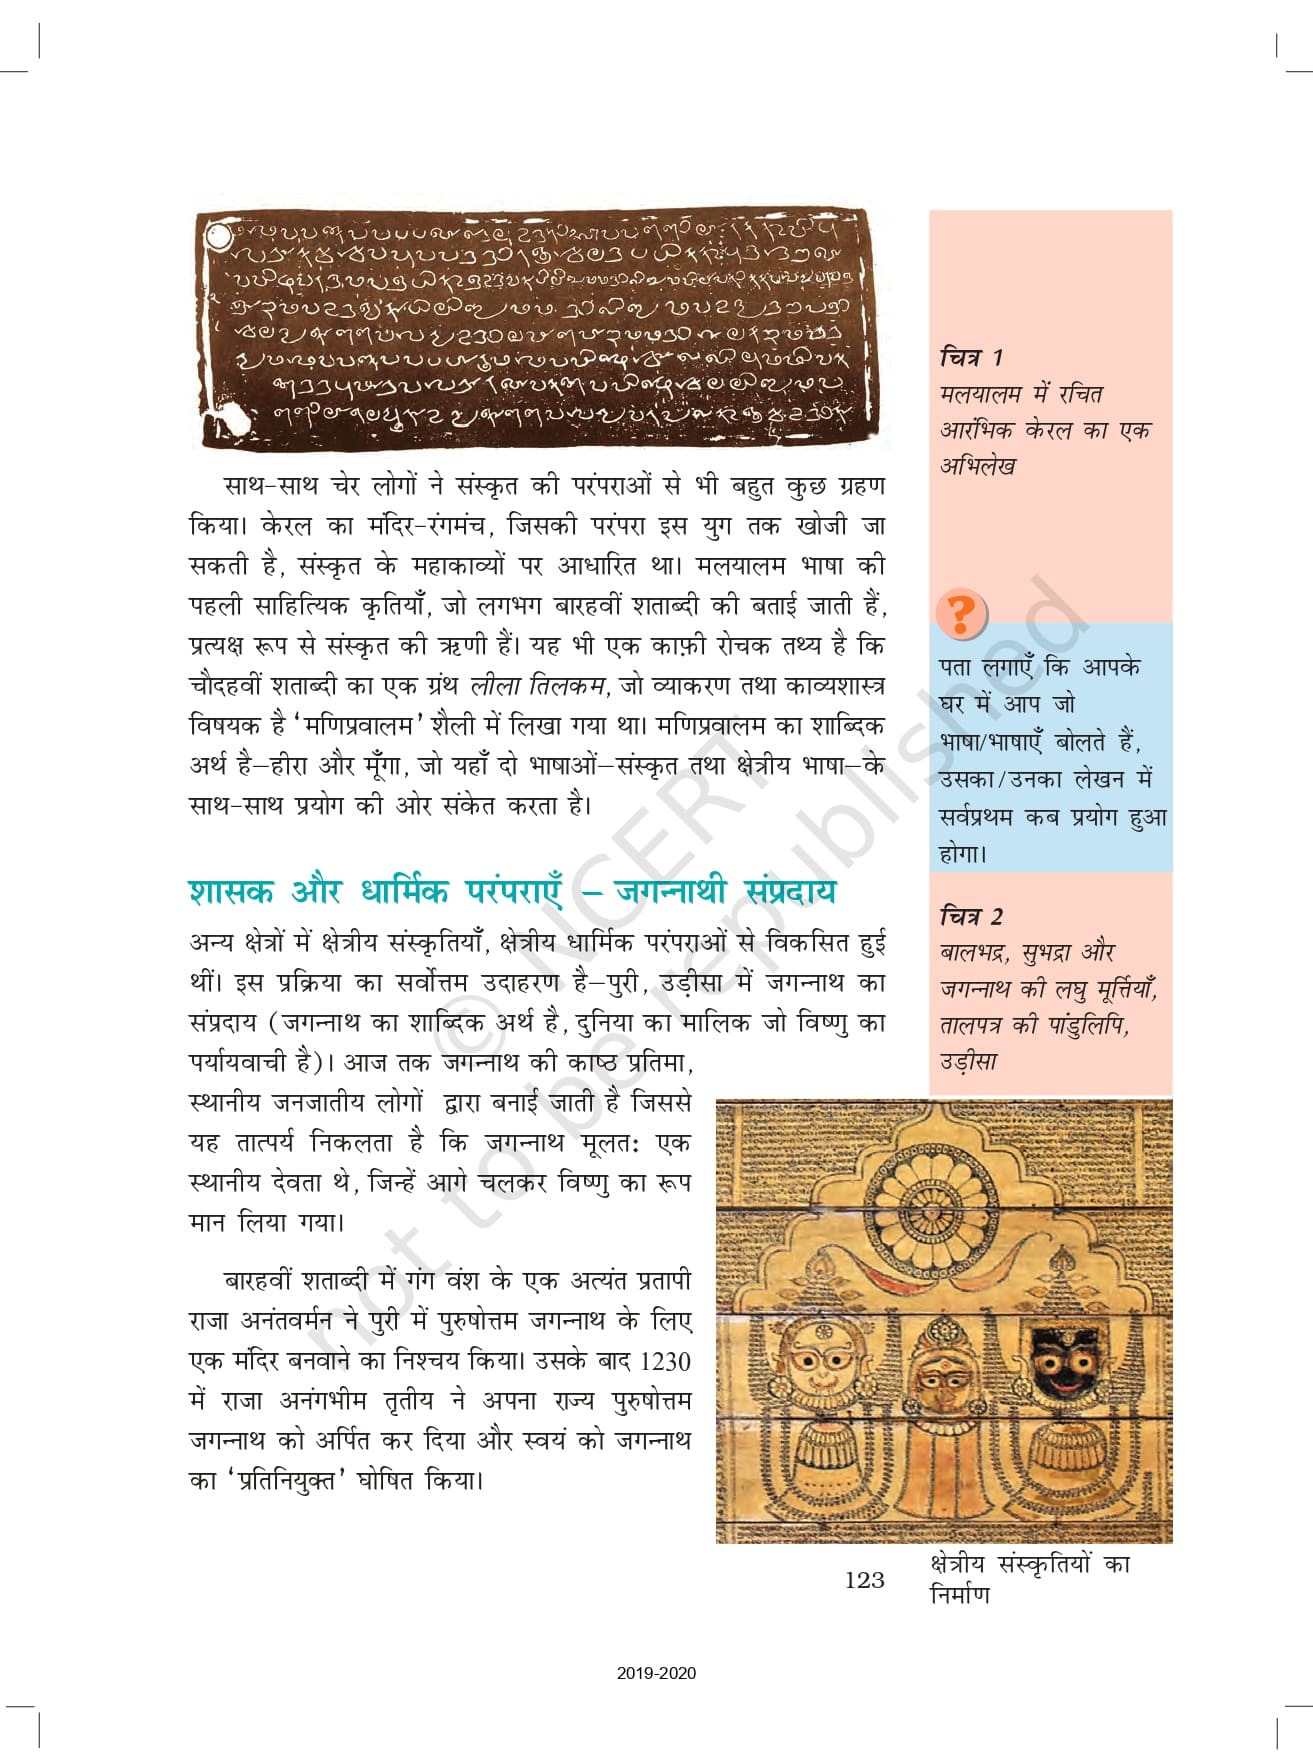 साथ-साथ चेर लोगों ने संस्कृत की परंपराओं से भी बहुत कुछ ग्रहण
किया। केरल का मंदिर-रंगमंच, जिसकी परंपरा इस युग तक खोजी जा
सकती है, संस्कृत के महाकाव्यों पर आधारित था। मलयालम भाषा की
पहली साहित्यिक कृतियाँ, जो लगभग बारहवीं शताब्दी की बताई जाती हैं,
प्रत्यक्ष रूप से संस्कृत की ऋणी हैं। यह भी एक काफ़ी रोचक तथ्य है कि
चौदहवीं शताब्दी का एक ग्रंथ लीला तिलकम, जो व्याकरण तथा काव्यशास्त्र
विषयक है ‘मणिप्रवालम’ शैली में लिखा गया था। मणिप्रवालम का शाब्दिक
अर्थ है—हीरा और मूँगा, जो यहाँ दो भाषाओं—संस्कृत तथा क्षेत्रीय भाषा—के
साथ-साथ प्रयोग की ओर संकेत करता है।
शासक और धार्मिक परंपराएँ – जगन्नाथी संप्रदाय
अन्य क्षेत्रों में क्षेत्रीय संस्कृतियाँ, क्षेत्रीय धार्मिक परंपराओं से विकसित हुई
थीं। इस प्रक्रिया का सर्वोत्तम उदाहरण है—पुरी, उड़ीसा में जगन्नाथ का
संप्रदाय (जगन्नाथ का शाब्दिक अर्थ है, दुनिया का मालिक जो विष्णु का
पर्यायवाची है)। आज तक जगन्नाथ की काष्ठ प्रतिमा,
स्थानीय जनजातीय लोगों द्वारा बनाई जाती है जिससे
यह तात्पर्य निकलता है कि जगन्नाथ मूलतः एक
स्थानीय देवता थे, जिन्हें आगे चलकर विष्णु का रूप
मान लिया गया।
बारहवीं शताब्दी में गंग वंश के एक अत्यंत प्रतापी
राजा अनंतवर्मन ने पुरी में पुरुषोत्तम जगन्नाथ के लिए
एक मंदिर बनवाने का निश्चय किया। उसके बाद 1230
में राजा अनंगभीम तृतीय ने अपना राज्य पुरुषोत्तम
जगन्नाथ को अर्पित कर दिया और स्वयं को जगन्नाथ
का ‘प्रतिनियुक्त’ घोषित किया।
चित्र 1
मलयालम में रचित
आरंभिक केरल का एक
अभिलेख
?
पता लगाएँ कि आपके
घर में आप जो
भाषा/भाषाएँ बोलते हैं,
उसका/उनका लेखन में
सर्वप्रथम कब प्रयोग हुआ
होगा।
चित्र 2
बालभद्र, सुभद्रा और
जगन्नाथ की लघु मूर्त्तियाँ,
तालपत्र की पांडुलिपि,
उड़ीसा
123
क्षेत्रीय संस्कृतियों का
निर्माण
2019-2020
© NCERT
not to be republished